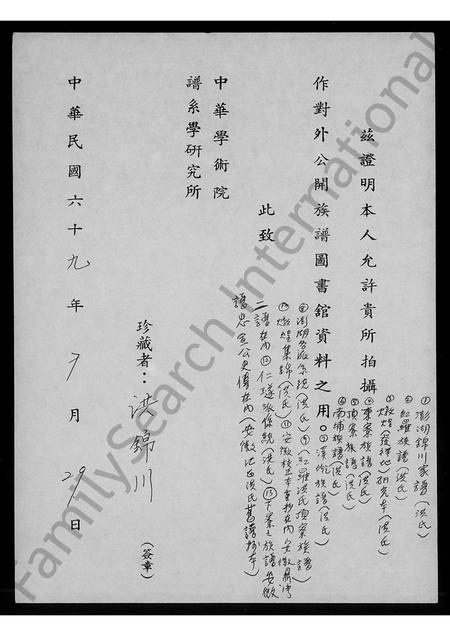 茲證明本人允許貴所拍攝
①澎湖錦川家譜(洪氏)
②紅羅族譜(洪氏)
③燉煌(發祥地)研究本(洪氏)
④東寮族譜(洪氏)
⑤頂寮族譜(洪氏)
⑥南埔族譜(洪氏)
作對外公開族譜圖書館資料之用。
族譜(洪氏)
⑧澎湖各派系統(洪氏)⑨紅羅洪氏頂寮族譜
⑩燉煌集錦(洪氏)⑪安徽
譜在內⑫仁𤩴派系統(洪氏)⑬下寮之族譜安徽
譜忠宣公史傳在內(安徽 洪氏舊譜抄本)
此致
中華學術院
譜系學研究所
珍藏者:洪錦川
(簽章)
中華民國六十九年7月29日
FamilySearch International